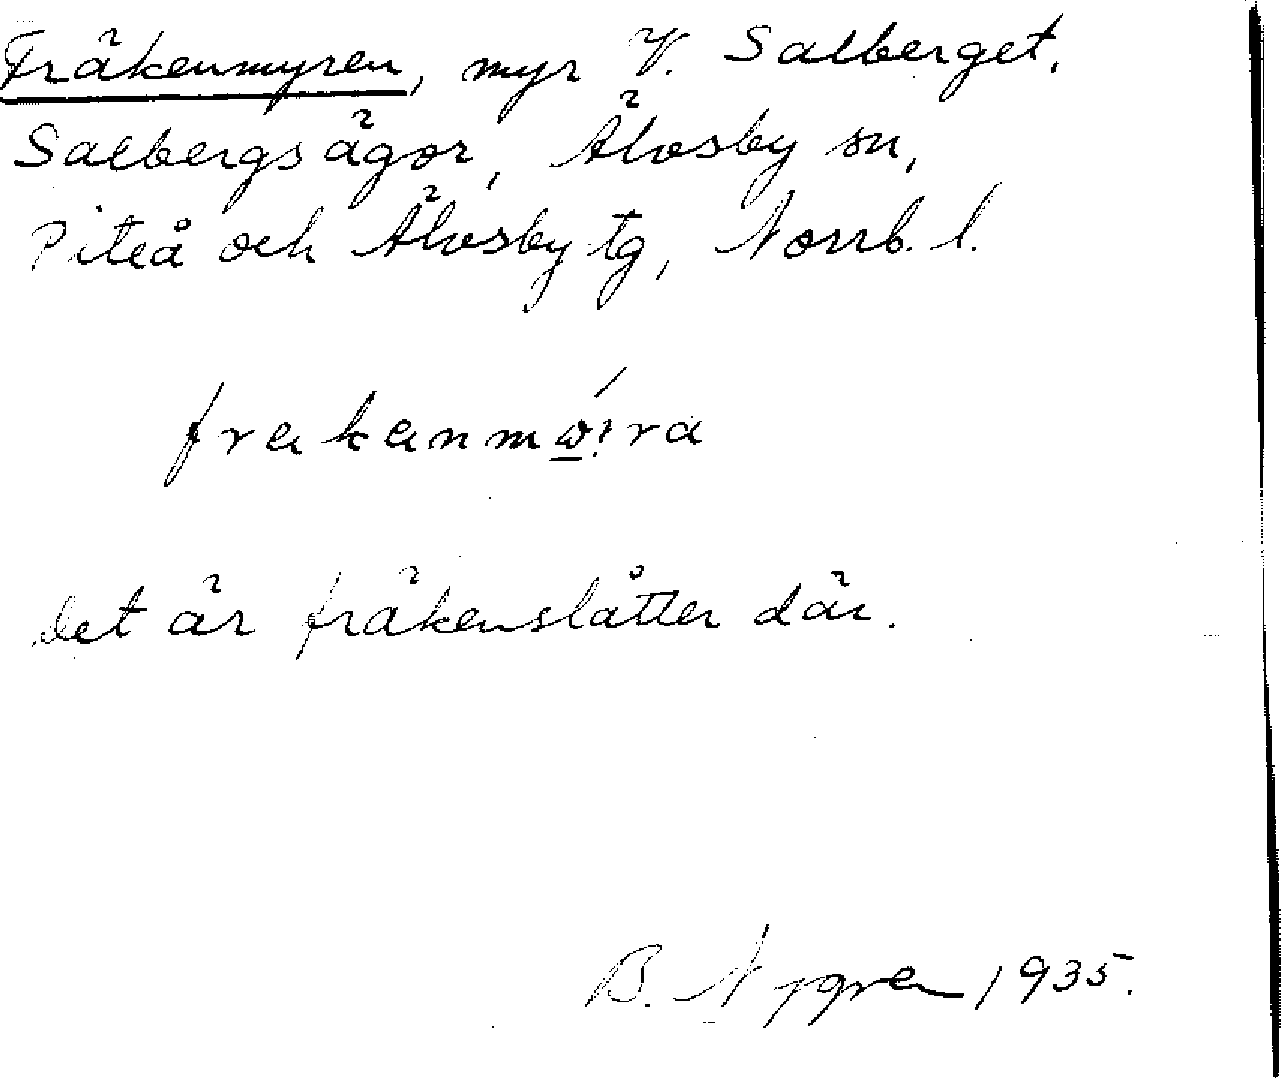 Fräkenmyren, myr V. Salberget,
Salbergsägor, Älvsby sn,
Piteå och Älvsby tg, Norrb. l.
Det är fräkenslåtter där.
B. Nygren 1935.